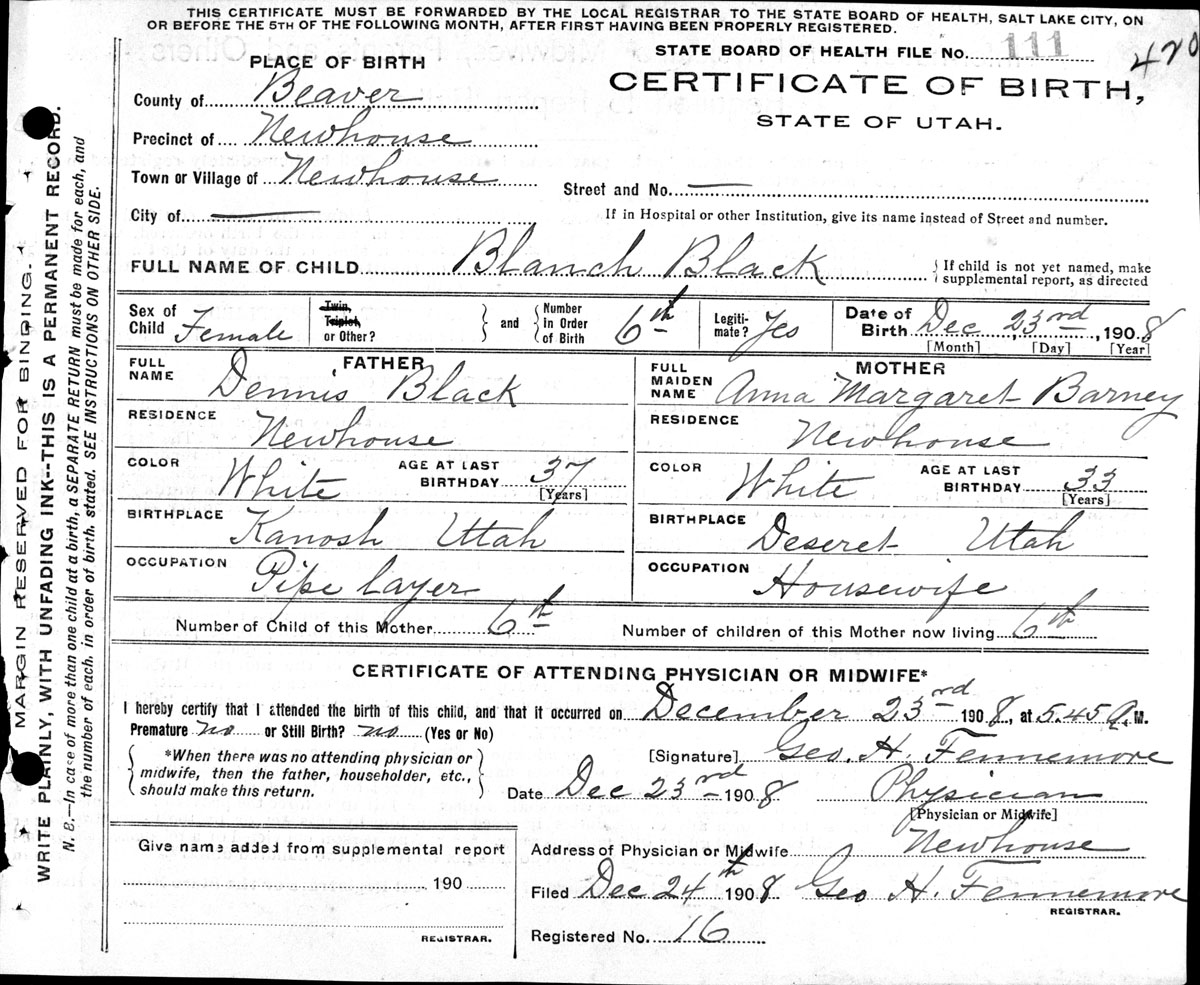 THIS CERTIFICATE MUST BE FORWARDED BY THE LOCAL REGISTRAR TO THE STATE BOARD OF HEALTH, SALT LAKE CITY, ON
OR BEFORE THE 5TH OF THE FOLLOWING MONTH, AFTER FIRST HAVING BEEN PROPERLY REGISTERED.
STATE BOARD OF HEALTH FILE No. 111
420
PLACE OF BIRTH
CERTIFICATE OF BIRTH,
STATE OF UTAH.
County of Beaver
Precinct of Newhouse
Town or Village of Newhouse
Street and No. —
City of —
If in Hospital or other Institution, give its name instead of Street and number.
FULL NAME OF CHILD Blanch Black
{ If child is not yet named, make
supplemental report, as directed
Sex of Child Female
Twin, Triplet, or Other?
} and { Number in Order of Birth 6th
Legiti-mate? Yes
Date of Birth Dec 23rd, 1908
[Month] [Day] [Year]
FATHER
FULL NAME Dennis Black
RESIDENCE Newhouse
COLOR White AGE AT LAST BIRTHDAY 37
[Years]
BIRTHPLACE Kanosh Utah
OCCUPATION Pipe layer
MOTHER
FULL MAIDEN NAME Anna Margaret Barney
RESIDENCE Newhouse
COLOR White AGE AT LAST BIRTHDAY 33
[Years]
BIRTHPLACE Deseret Utah
OCCUPATION Housewife
Number of Child of this Mother 6th Number of children of this Mother now living 6th
CERTIFICATE OF ATTENDING PHYSICIAN OR MIDWIFE*
I hereby certify that I attended the birth of this child, and that it occurred on December 23rd 1908, at 5.45 A.M.
Premature no or Still Birth? no (Yes or No)
{ *When there was no attending physician or
midwife, then the father, householder, etc.,
should make this return. }
[Signature] Geo. H. Fennemore
Date Dec 23rd 1908 Physician
[Physician or Midwife]
Give name added from supplemental report
190
REGISTRAR.
Address of Physician or Midwife Newhouse
Filed Dec 24th 1908 Geo H. Fennemore
REGISTRAR.
Registered No. 16
MARGIN RESERVED FOR BINDING.
WRITE PLAINLY, WITH UNFADING INK--THIS IS A PERMANENT RECORD.
N. B.—In case of more than one child at a birth, a SEPARATE RETURN must be made for each, and
the number of each, in order of birth, stated. SEE INSTRUCTIONS ON OTHER SIDE.